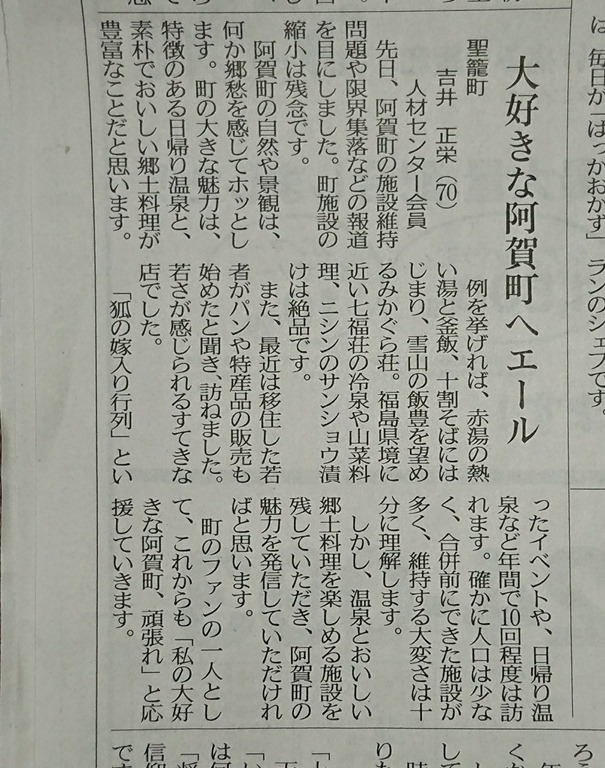 は、毎日が「ばっかおかず」
ランのシェフです。
大好きな阿賀町へエール
聖籠町
吉井　正栄（70）
人材センター会員
先日、阿賀町の施設維持
問題や限界集落などの報道
を目にしました。町施設の
縮小は残念です。
阿賀町の自然や景観は、
何か郷愁を感じてホッとし
ます。町の大きな魅力は、
特徴のある日帰り温泉と、
素朴でおいしい郷土料理が
豊富なことだと思います。
例を挙げれば、赤湯の熱
い湯と釜飯、十割そばには
じまり、雪山の飯豊を望め
るみかぐら荘。福島県境に
近い七福荘の冷泉や山菜料
理、ニシンのサンショウ漬
けは絶品です。
また、最近は移住した若
者がパンや特産品の販売も
始めたと聞き、訪ねました。
若さが感じられるすてきな
店でした。
「狐の嫁入り行列」とい
ったイベントや、日帰り温
泉など年間で10回程度は訪
れます。確かに人口は少な
く、合併前にできた施設が
多く、維持する大変さは十
分に理解します。
しかし、温泉とおいしい
郷土料理を楽しめる施設を
残していただき、阿賀町の
魅力を発信していただけれ
ばと思います。
町のファンの一人とし
て、これからも「私の大好
きな阿賀町、頑張れ」と応
援していきます。